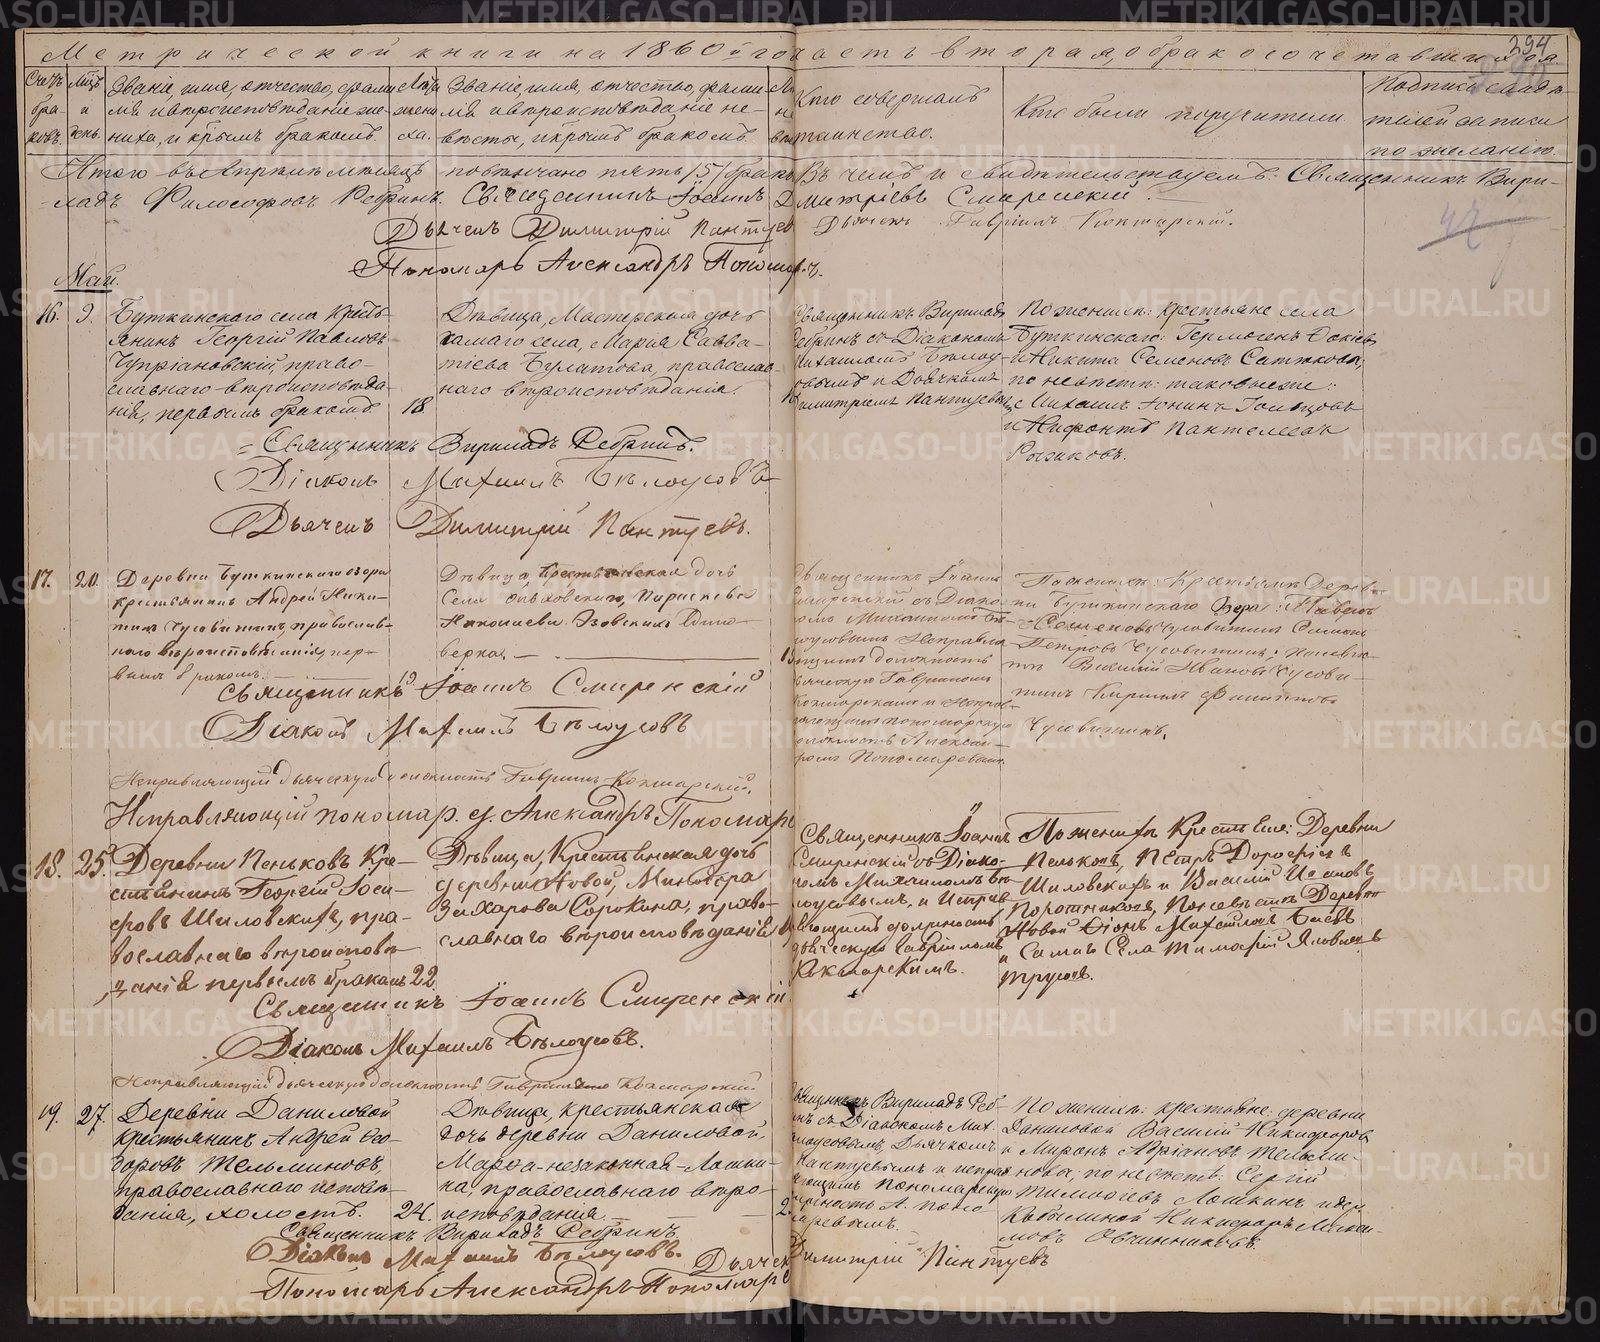 Метрической книги на 1860й годъ часть вторая, о бракосочетавшихся.
294
Счетъ браковъ.
Мѣс. и день.
Званіе, имя, отчество, фамилія и вѣроисповѣданіе жениха, и кѣимъ бракомъ.
Лѣта жениха.
Званіе, имя, отчество, фамилія и вѣроисповѣданіе невѣсты, и кѣимъ бракомъ.
Кто совершалъ
таинство.
Кто были поручители
Подписи свидѣ-
телей записи
по желанію.
Итого въ Апрѣлѣ мѣсяцѣ повѣнчано пять /5/ браковъ Въ чемъ и свидѣтельствуемъ: Священникъ Вири-
ладъ Философовъ Ребринъ. Священникъ Іоаннъ Дмитріевъ Смиренскій.
Дьячекъ Димитрій Пантуев Дьячекъ Гавріилъ Кокшарскій.
Пономарь Александръ Пономар.
Май.
16. 9. Буткинскаго села Кресть-
янинъ Георгій Павловъ
Чупріановскій, право-
славнаго вѣроисповѣда-
нія, первымъ бракомъ.
18.
Дѣвица, Мастерская дочь
тамаго села, Марія Савва-
тіева Булатова, православ-
наго вѣроисповѣданія.
Священникъ Вириладъ
Ребринъ съ Діакономъ
Михаиломъ Бѣлоу-
совымъ и Дьячкомъ
Димитріемъ Пантуевы
По женихѣ: крестьяне села
Буткинскаго: Гермогенъ
и Никита Семеновъ
по невѣстѣ: таковыеже:
Михаилъ Іонинъ
и Нифонтъ Пантелеевъ
Священникъ Вириладъ Ребринъ.
Діаконъ Михаилъ Бѣлоусовъ
Дьячекъ Димитрій Пантуевъ.
17. 20. Деревни Буткинскаго озера
крестьянинъ Андрей Ники-
тинъ Чусовитинъ, православ-
наго вѣроисповѣданія, пер-
вымъ бракомъ.
Дѣвица, Крестьянская дочь
Села
Николаева
верка.
Священникъ Іоаннъ
Смиренскій съ Діако-
номъ Михаиломъ Бѣ-
лоусовымъ Исправля
ющимъ должность
дьяческую Гавріиломъ
Кокшарскимъ и Исправ-
ляющимъ пономарскую
должность Алексан-
ромъ Пономаревымъ
По женихѣ: Крестьяне Дерев-
ни Буткинскаго Озера: Павелъ
Семеновъ Чусовитинъ Симонъ
Петровъ Чусовитинъ; По невѣс-
тѣ Василій Ивановъ Чусови-
тинъ Кириллъ
Чусовитинъ.
Священникъ Іоаннъ Смиренскій
Діаконъ Михаилъ Бѣлоусовъ
Исправляющій дьяческую должность Гавріилъ Кокшарскій.
Исправляющій пономар. д. Александръ Пономар
18. 25. Деревни Пеньковъ Кре-
стьянинъ Георгій Іоси-
фовъ Шиловскихъ, пра-
вославнаго вѣроисповѣ-
данія первымъ бракомъ
22
Дѣвица, Крестьянская дочь
деревни Новой, Миндора
Захарова Сорокина, право-
славнаго вѣроисповѣданія
Священникъ Іоаннъ
Смиренскій съ Діако-
номъ Михаиломъ Бѣ-
лоусовымъ, и Исправ
ляющимъ должность
дьяческую Гавріиломъ
Кокшарскимъ.
По женихѣ Крестьяне: Деревни
Пеньковъ, Петръ Дорофѣевъ
Шиловскихъ и Василій Исаковъ
По невѣстѣ Деревни
Новой Михайловъ
и Самаго Села Тимофій Яковлевъ
Трусовъ.
Священникъ Іоаннъ Смиренскій
Діаконъ Михаилъ Бѣлоусовъ.
Исправляющій дьяческую должность Гавріилъ Кокшарскій
19. 27. Деревни Даниловой
крестьянинъ Андрей Ѳео-
доровъ Тельминовъ,
православнаго исповѣ-
данія, холостъ.
24.
Дѣвица, крестьянская
дочь деревни Даниловой,
Марѳа-незаконная-Лошки-
на, православнаго вѣро-
исповѣданія.
Священникъ Вириладъ Реб-
инъ съ Діакономъ Мих.
Бѣлоусовымъ, Дьячкомъ
Пантуевымъ и исправ
ляющимъ пономарскую
должность А. Поно
маревымъ.
По женихѣ: крестьяне: деревни
Даниловой Василій Никифоров
и Миронъ Адріановъ Тельми-
нова, по невѣстѣ: Сергій
Тимоѳеевъ Лошкинъ и дер.
Кабылиной Никифоръ
Овчинниковъ.
Священникъ Вириладъ Ребринъ
Діаконъ Михаилъ Бѣлоусовъ. Дьячекъ Димитрій Пантуевъ
Пономарь Александръ Пономаре
METRIKI.GASO-URAL.RU